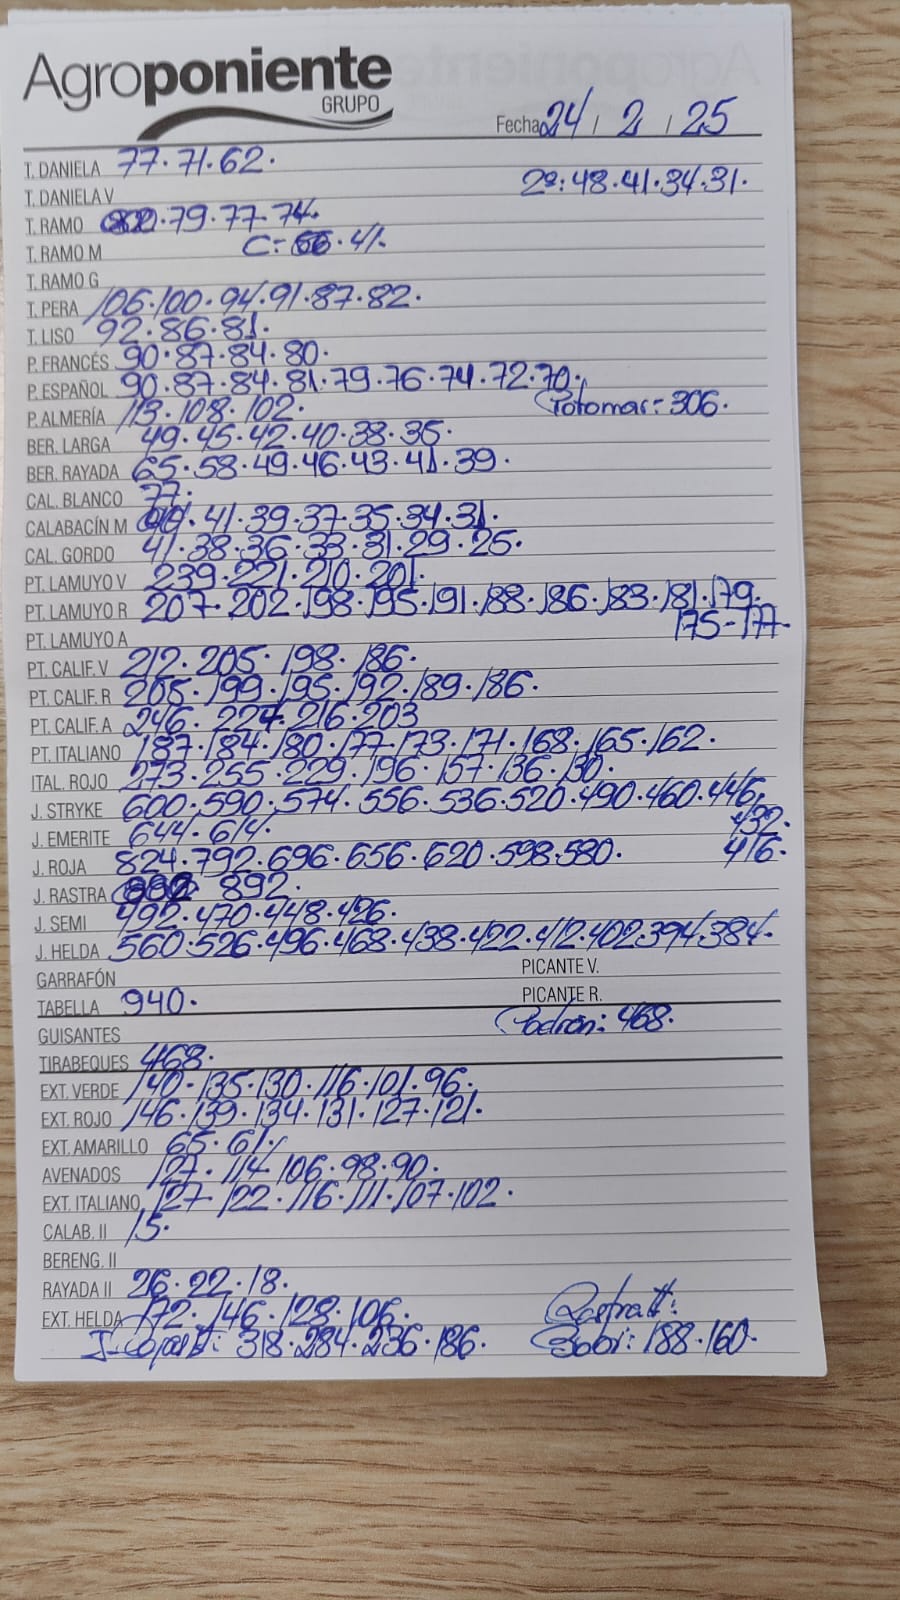 Agroponiente
GRUPO
Fecha 24 / 2 / 25
T. DANIELA 77·71·62·
T. DANIELA V 2º: 48·41·34·31·
T. RAMO 79·77·74·
T. RAMO M C=·41·
T. RAMO G
T. PERA 106·100·94·91·87·82·
T. LISO 92·86·81·
P. FRANCÉS 90·87·84·80·
P. ESPAÑOL 90·87·84·81·79·76·74·72·70·
P. ALMERÍA 113·108·102· 306·
BER. LARGA 49·45·42·40·38·35·
BER. RAYADA 65·58·49·46·43·41·39·
CAL. BLANCO 77·
CALABACÍN M 41·39·37·35·34·31·
CAL. GORDO 41·38·36·33·31·29·25·
PT. LAMUYO V 239·221·210·201·
PT. LAMUYO R 207·202·198·195·191·188·186·183·181·179·
175-177-
PT. LAMUYO A
PT. CALIF. V 212·205·198·186·
PT. CALIF. R 205·199·195·192·189·186·
PT. CALIF. A 246·227·216·203
PT. ITALIANO 187·184·180·177·173·171·168·165·162·
ITAL. ROJO 273·255·229·196·157·136·130·
J. STRYKE 600·590·574·556·536·520·490·460·446·
432·
J. EMERITE 644·614·
416·
J. ROJA 824·792·696·656·620·598·580·
J. RASTRA 892·
J. SEMI 492·470·448·426·
J. HELDA 560·526·496·468·438·422·412·402·394·384·
GARRAFÓN PICANTE V.
TABELLA 940· PICANTE R.
GUISANTES Padrón: 468·
TIRABEQUES 468·
EXT. VERDE 140·135·130·116·101·96·
EXT. ROJO 146·139·134·131·127·121·
EXT. AMARILLO 65·61·
AVENADOS 127·114·106·98·90·
EXT. ITALIANO 127·122·116·111·107·102·
CALAB. II 15·
BERENG. II
RAYADA II 26·22·18·
EXT. HELDA 172·146·128·106·
318·284·236·186· 188·160·